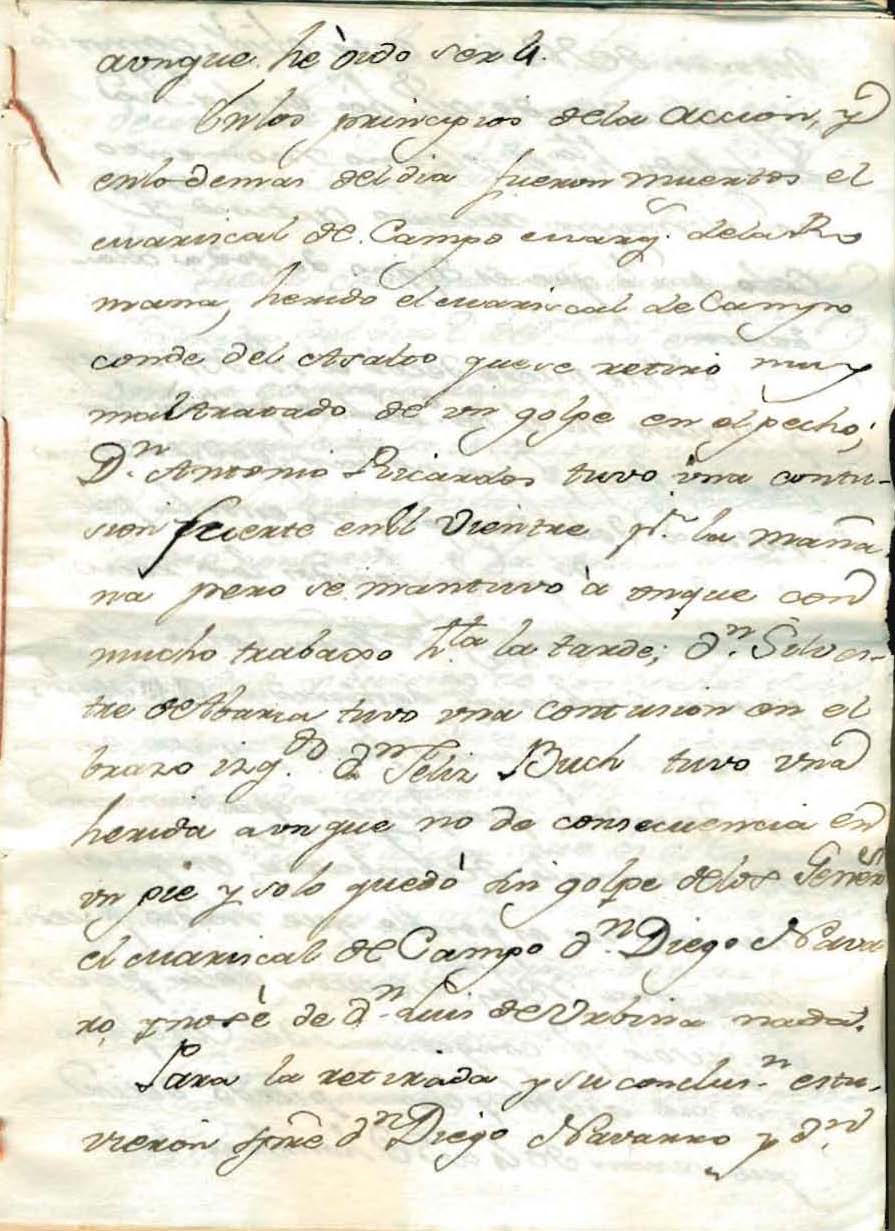 aunque hè oido ser 4.
En los principios de la accion, y
en lo demas del dia fueron muertos el
mariscal de Campo marq.s de la Ro
mana, herido el mariscal de Campo
conde del Asalto que se retiró muy
maltratado de un golpe en el pecho;
D.n Antonio Ricardos tuvo una contu-
sion fuerte en el vientre p.r la maña
na pero se mantuvo à unque con
mucho trabaxo h.ta la tarde; d.n Silves-
tre de Abarca tuvo una contusion en el
brazo izq.do d.n Felix Buch tuvo una
herida aunque no de consecuencia en
un pie y solo quedó sin golpe de los Gener.es
el mariscal de Campo d.n Diego Nava
ro, y no sè de d.n Luis de Urbina nada.
Para la retirada y su conclus.n estu-
vieron spre d.n Diego Navarro y d.n